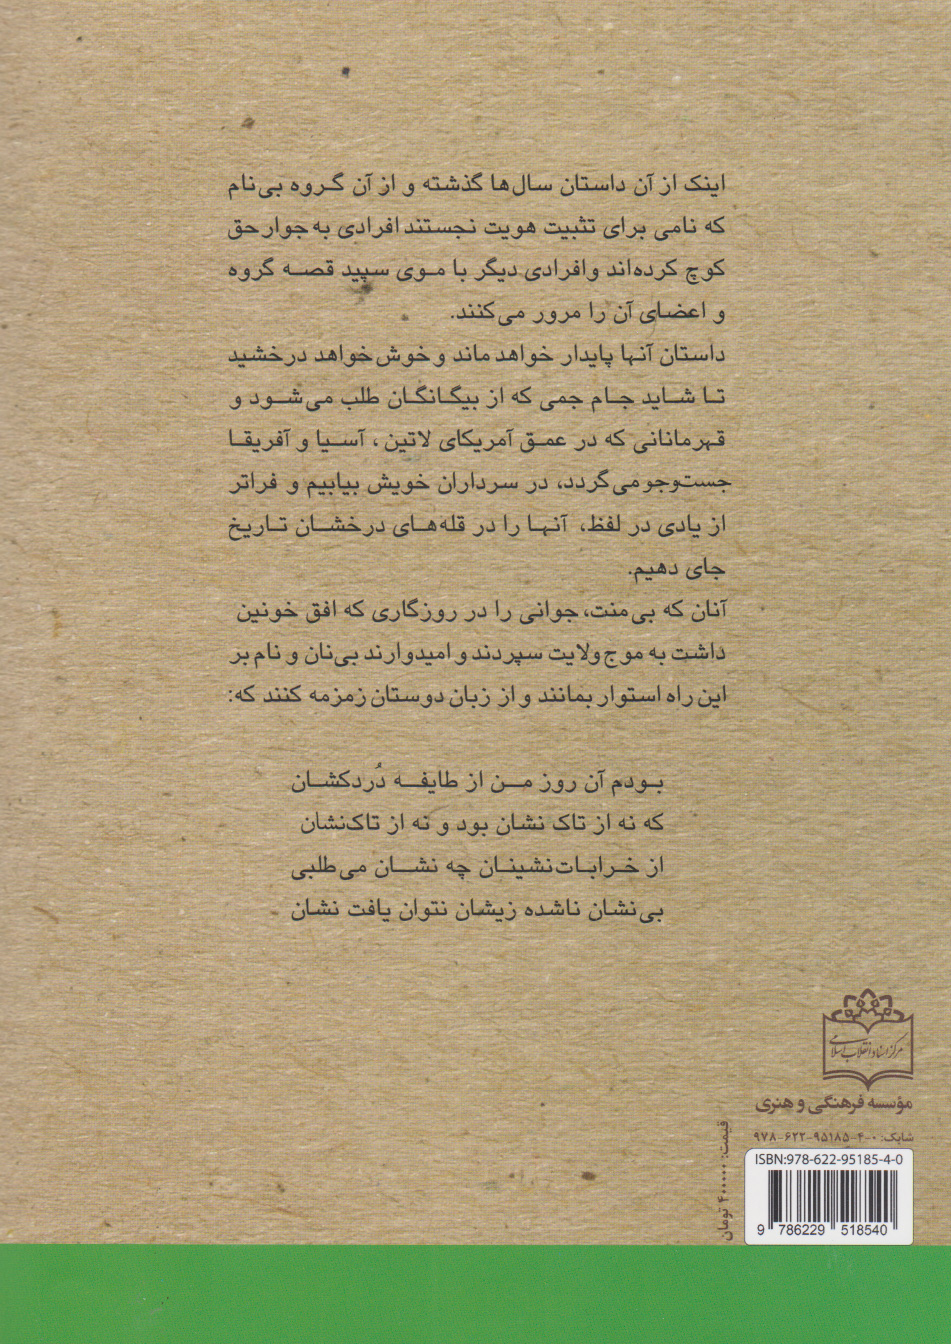 اینک از آن داستان سال‌ها گذشته و از آن گروه بی‌نام
که نامی برای تثبیت هویت نجستند افرادی به جوار حق
کوچ کرده‌اند و افرادی دیگر با موی سپید قصه گروه
و اعضای آن را مرور می‌کنند.
داستان آنها پایدار خواهد ماند و خوش خواهد درخشید
تا شاید جام جمی که از بیگانگان طلب می‌شود و
قهرمانانی که در عمق آمریکای لاتین، آسیا و آفریقا
جست‌وجو می‌گردد، در سرداران خویش بیابیم و فراتر
از یادی در لفظ، آنها را در قله‌های درخشان تاریخ
جای دهیم.
آنان که بی‌منت، جوانی را در روزگاری که افق خونین
داشت به موج ولایت سپردند و امیدوارند بی‌نان و نام بر
این راه استوار بمانند و از زبان دوستان زمزمه کنند که:
بودم آن روز من از طایفه دُردکشان
که نه از تاک نشان بود و نه از تاک‌نشان
از خرابات‌نشینان چه نشان می‌طلبی
بی‌نشان ناشده زیشان نتوان یافت نشان
مرکز اسناد انقلاب اسلامی
مؤسسه فرهنگی و هنری
شابک: ۰-۴-۹۵۱۸۵-۶۲۲-۹۷۸
قیمت: ۴۰۰۰۰۰ تومان
ISBN:978-622-95185-4-0
9 786229 518540